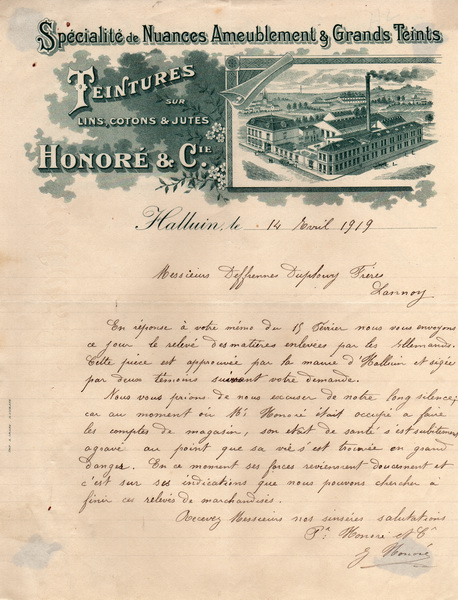 Spécialité de Nuances Ameublement & Grands Teints
TEINTURES
SUR
LINS, COTONS & JUTES
HONORÉ & C.IE
Halluin, le 14 Avril 1919
Messieurs Deffrennes Duplouy Frères
Lannoy
En réponse à votre mémo du 15 Février nous vous envoyons
ce jour le relevé des matières enlevées par les Allemands.
Cette pièce est approuvée par la mairie d'Halluin et signée
par deux témoins suivant votre demande.
Nous vous prions de nous excuser de notre long silence;
car au moment où Mr Honoré était occupé a faire
les comptes de magasin, son état de santé s'est subitement
agravé au point que sa vie s'est trouvée en grand
danger. En ce moment ses forces reviennent doucement et
c'est sur ses indications que nous pouvons chercher à
finir ces relevés de marchandises.
Recevez Messieurs nos sincères salutations
Pr Honoré et Cie
J Honoré